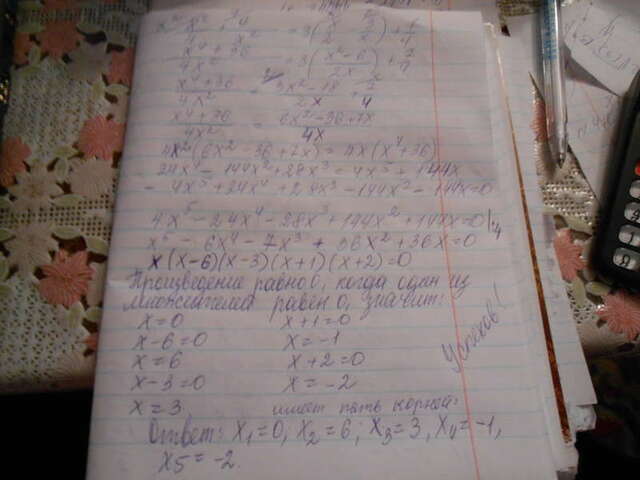 x⁴ + 36 / 4x² = 3((x² - 6) / 2x) + 7/4
x⁴ + 36 / 4x² = (3x² - 18) / 2x + 7/4
x⁴ + 36 / 4x² = (6x² - 36 + 7x) / 4x
4x²(6x² - 36 + 7x) = 4x(x⁴ + 36)
24x⁴ - 144x² + 28x³ = 4x⁵ + 144x
- 4x⁵ + 24x⁴ + 28x³ - 144x² - 144x = 0
4x⁵ - 24x⁴ - 28x³ + 144x² + 144x = 0 |:4
x⁵ - 6x⁴ - 7x³ + 36x² + 36x = 0
x(x-6)(x-3)(x+1)(x+2) = 0
Произведение равно 0, когда один из
множителей равен 0, значит:
x = 0 x + 1 = 0
x - 6 = 0 x = -1
x = 6 x + 2 = 0
x - 3 = 0 x = -2
x = 3 имеет пять корней.
Ответ: x₁ = 0, x₂ = 6; x₃ = 3, x₄ = -1,
x5 = -2.
Успехов!